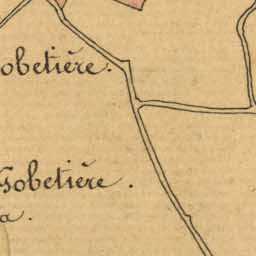 obetière.
Gobetière.
a.